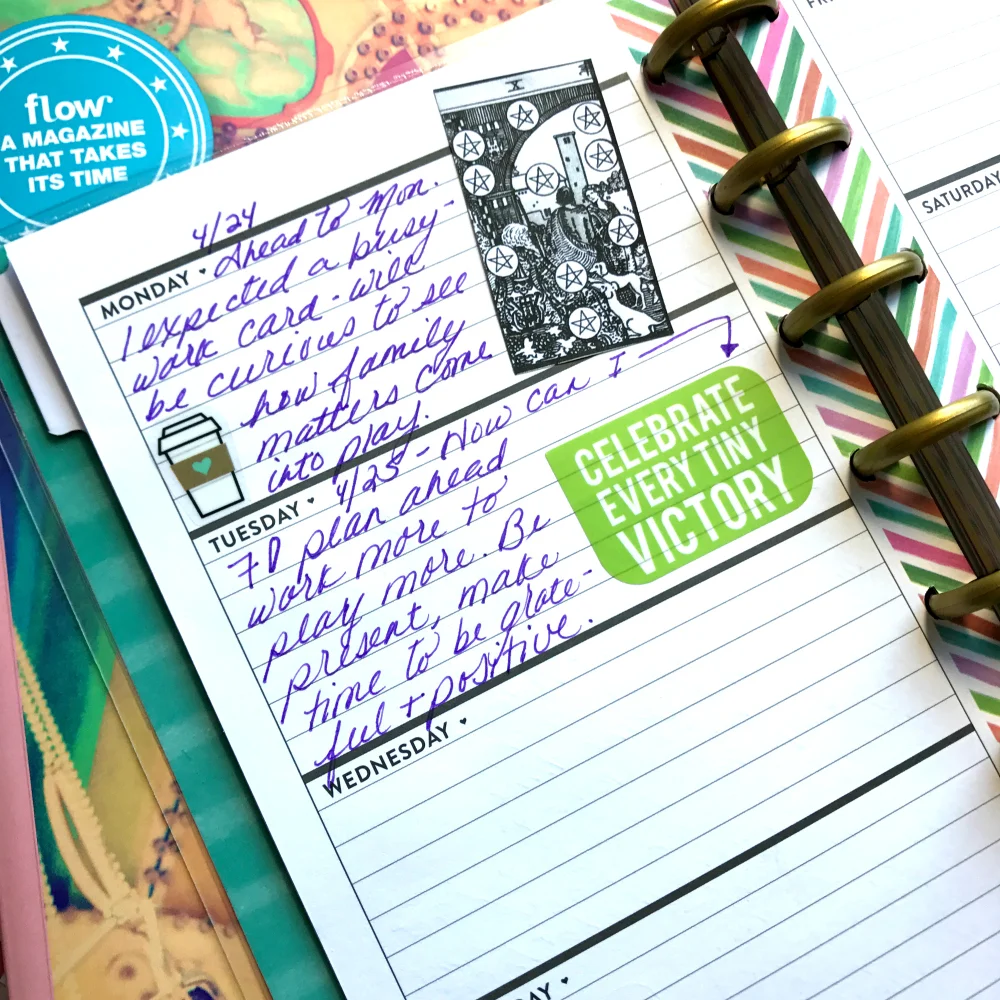 flow
A MAGAZINE
THAT TAKES
ITS TIME
X
4/24
MONDAY • Ahead to Mon.
I expected a busy-
work card - will
be curious to see
how family
matters come
into play.
TUESDAY • 4/25 - How can I
7D plan ahead
work more to
play more. Be
present, make
time to be grate-
ful + positive.
CELEBRATE
EVERY TINY
VICTORY
WEDNESDAY
DAY
FR
SATURDAY